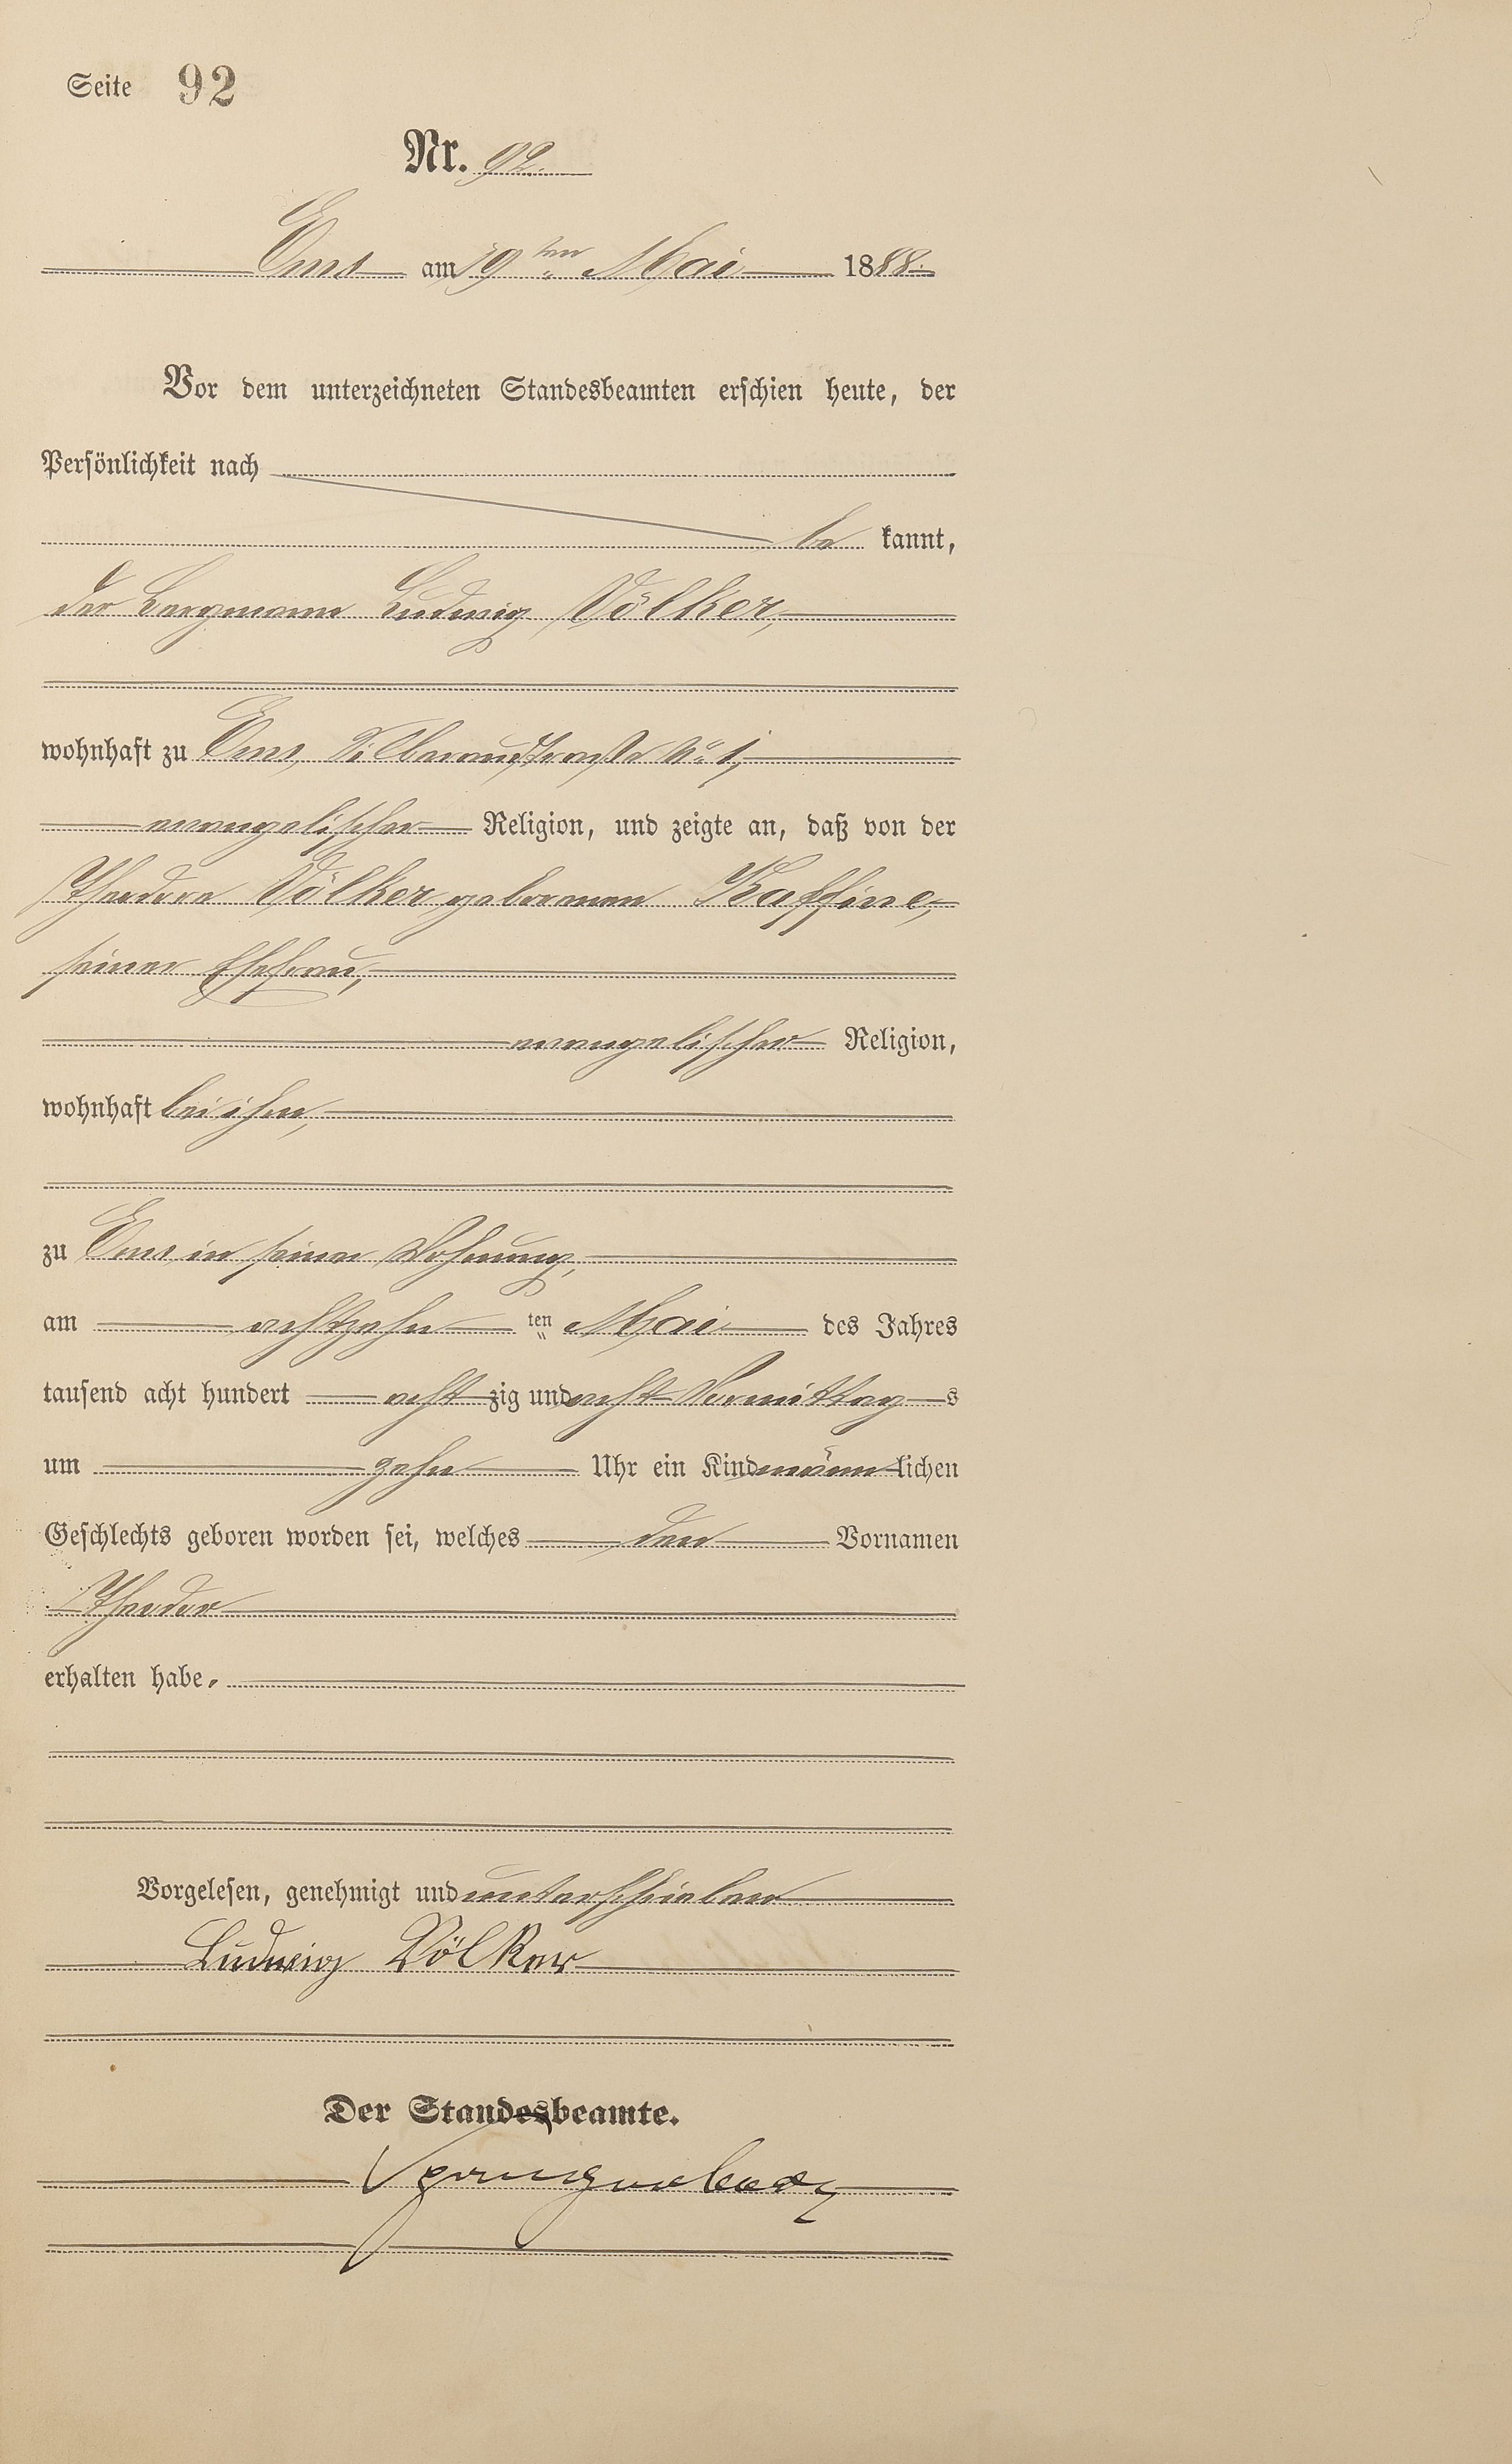 Seite 92
Nr. 92.
Ems am 19ten Mai 1888.
Vor dem unterzeichneten Standesbeamten erschien heute, der
Persönlichkeit nach
be kannt,
der Bergmann Ludwig Völker,
wohnhaft zu Ems, Silberaustraße No 1,
evangelischer Religion, und zeigte an, daß von der
Theodore Völker geborenen Kaffine,
seiner Ehefrau,
evangelischer Religion,
wohnhaft bei ihm,
zu Ems in seiner Wohnung,
am achtzehn ten Mai des Jahres
tausend acht hundert acht zig und acht Vormittag s
um zehn Uhr ein Kind männ lichen
Geschlechts geboren worden sei, welches den Vornamen
Theodor
erhalten habe.
Vorgelesen, genehmigt und unterschrieben
Ludwig Völker
Der Standesbeamte.